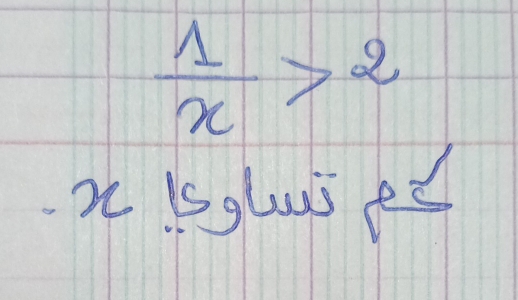 1/x > 2
كم تساوي x.